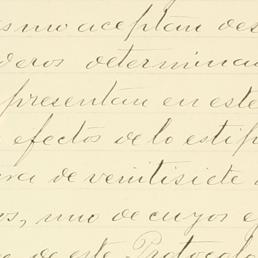 smo aceptan des
deros determinac
presentan en este
efectos de lo estip
ra de veintisiete
os, uno de cuyos e
de este Protocolo